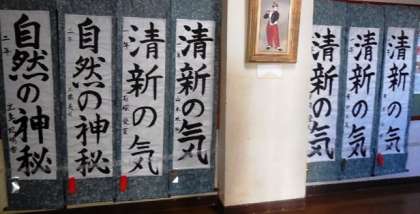 自然の神秘
自然の神秘
清新の気
清新の気
清新の気
清新の気
清新の気